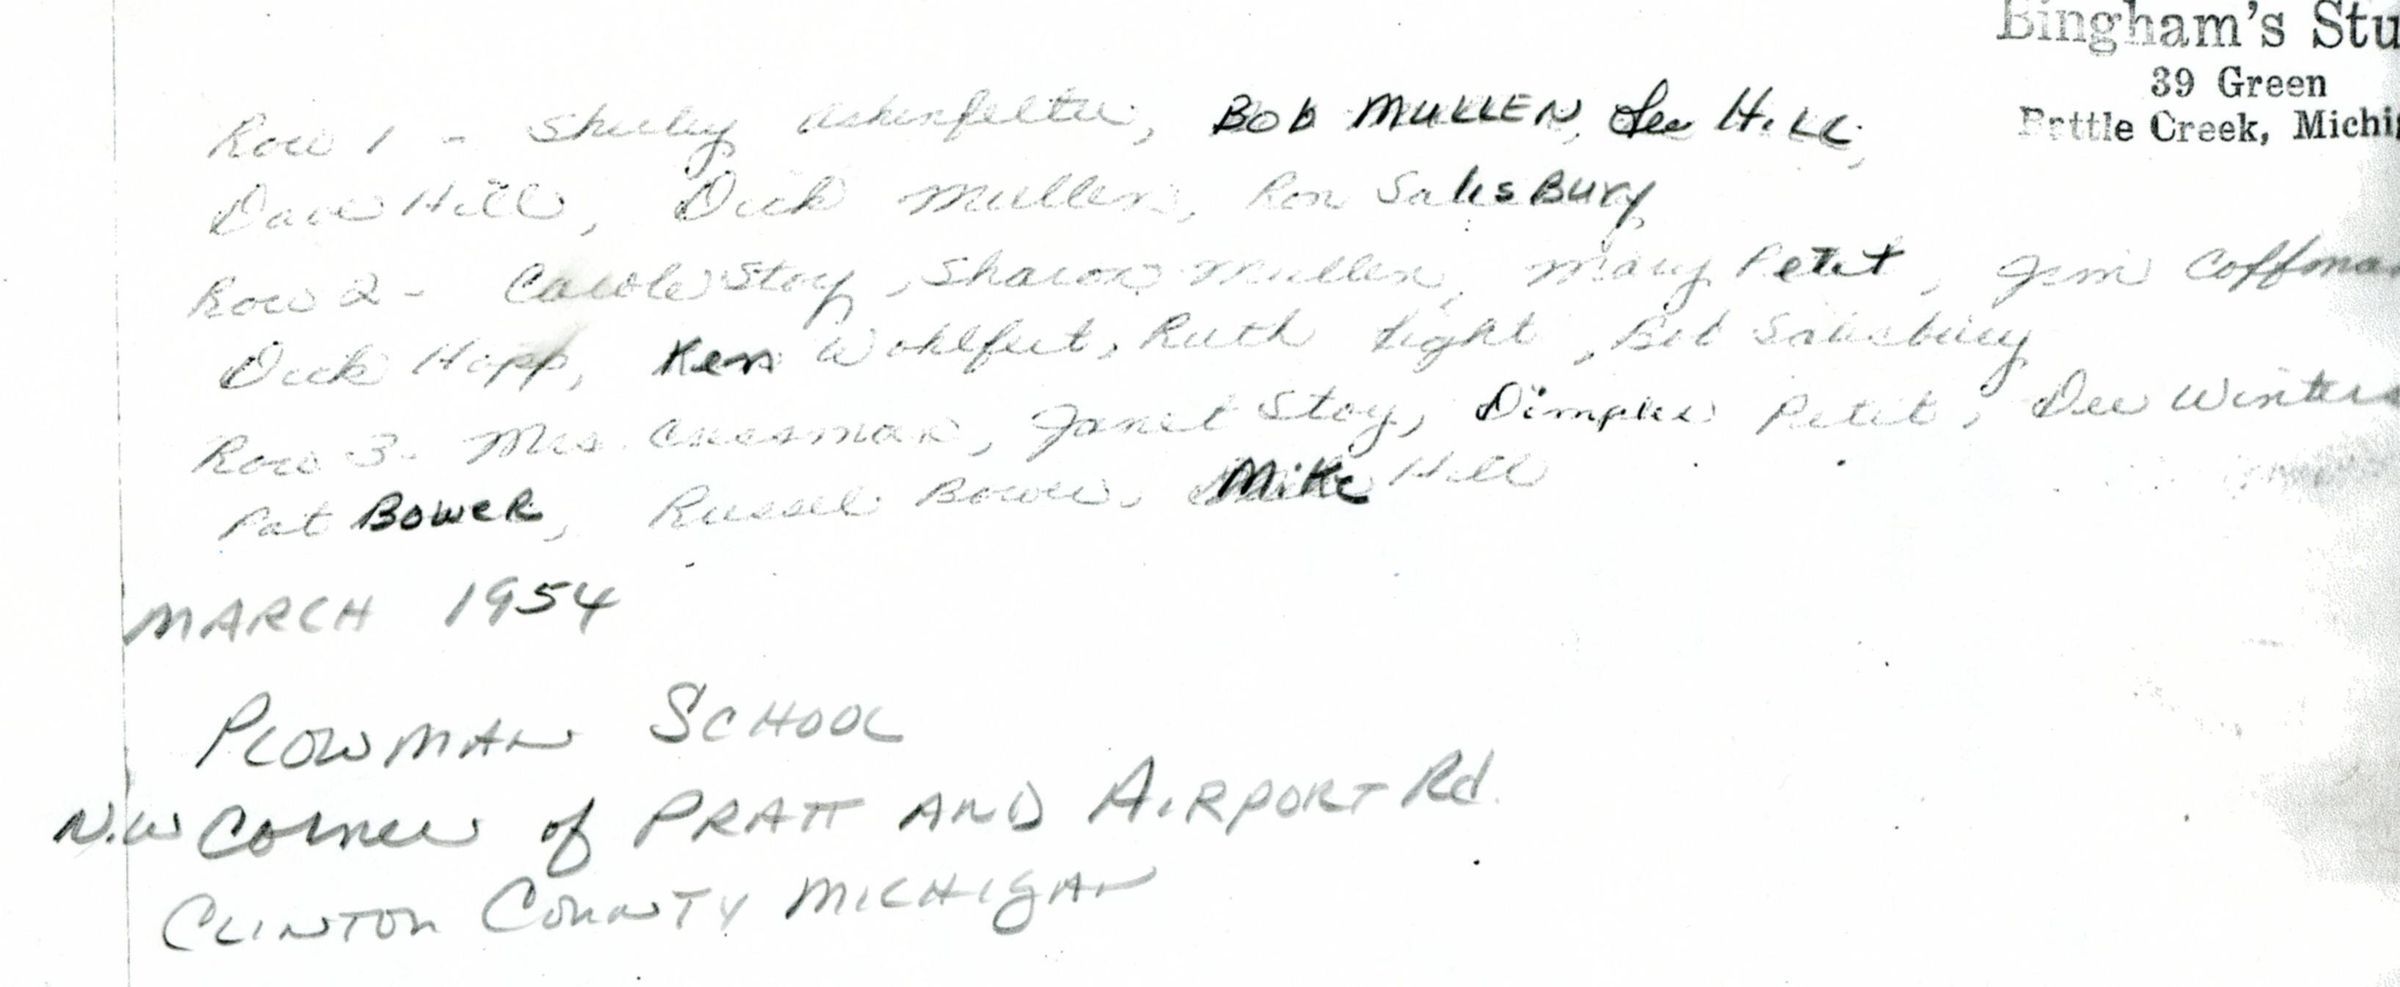 Bingham's Stu
39 Green
Battle Creek, Michi
Row 1 - Shirley Ashenfelter, Bob MULLEN, Lee Hill,
Dave Hill, Dick Mullen, Ron SalisBury
Row 2 - Carole Stoy, Sharon Mullen, Mary Petit, Jim Coffman
Dick Hopp, Ken Wohlfert, Ruth Light, Bob Salisbury
Row 3 - Mrs. Cressman, Janet Stoy, Dimples Petit, Dee Winters
Pat BOWER, Russel Bower, Mike Hill
MARCH 1954
PLOWMAN SCHOOL
N.W Corner of PRATT AND AIRPORT Rd.
CLINTON COUNTY MICHIGAN